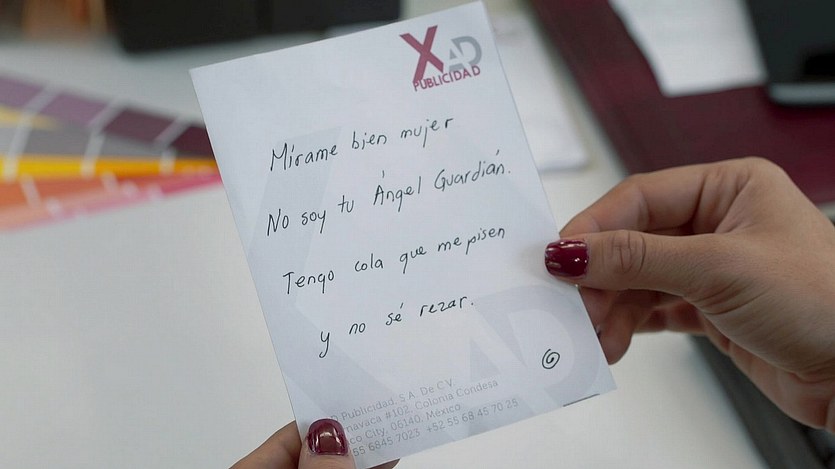 XAD
PUBLICIDAD
Mírame bien mujer
No soy tu Ángel Guardián.
Tengo cola que me pisen
y no sé rezar.
Publicidad, S.A. De C.V.
#102, Colonia Condesa
City, 06140, México.
55 6845 7023 +52 55 68 45 70 25